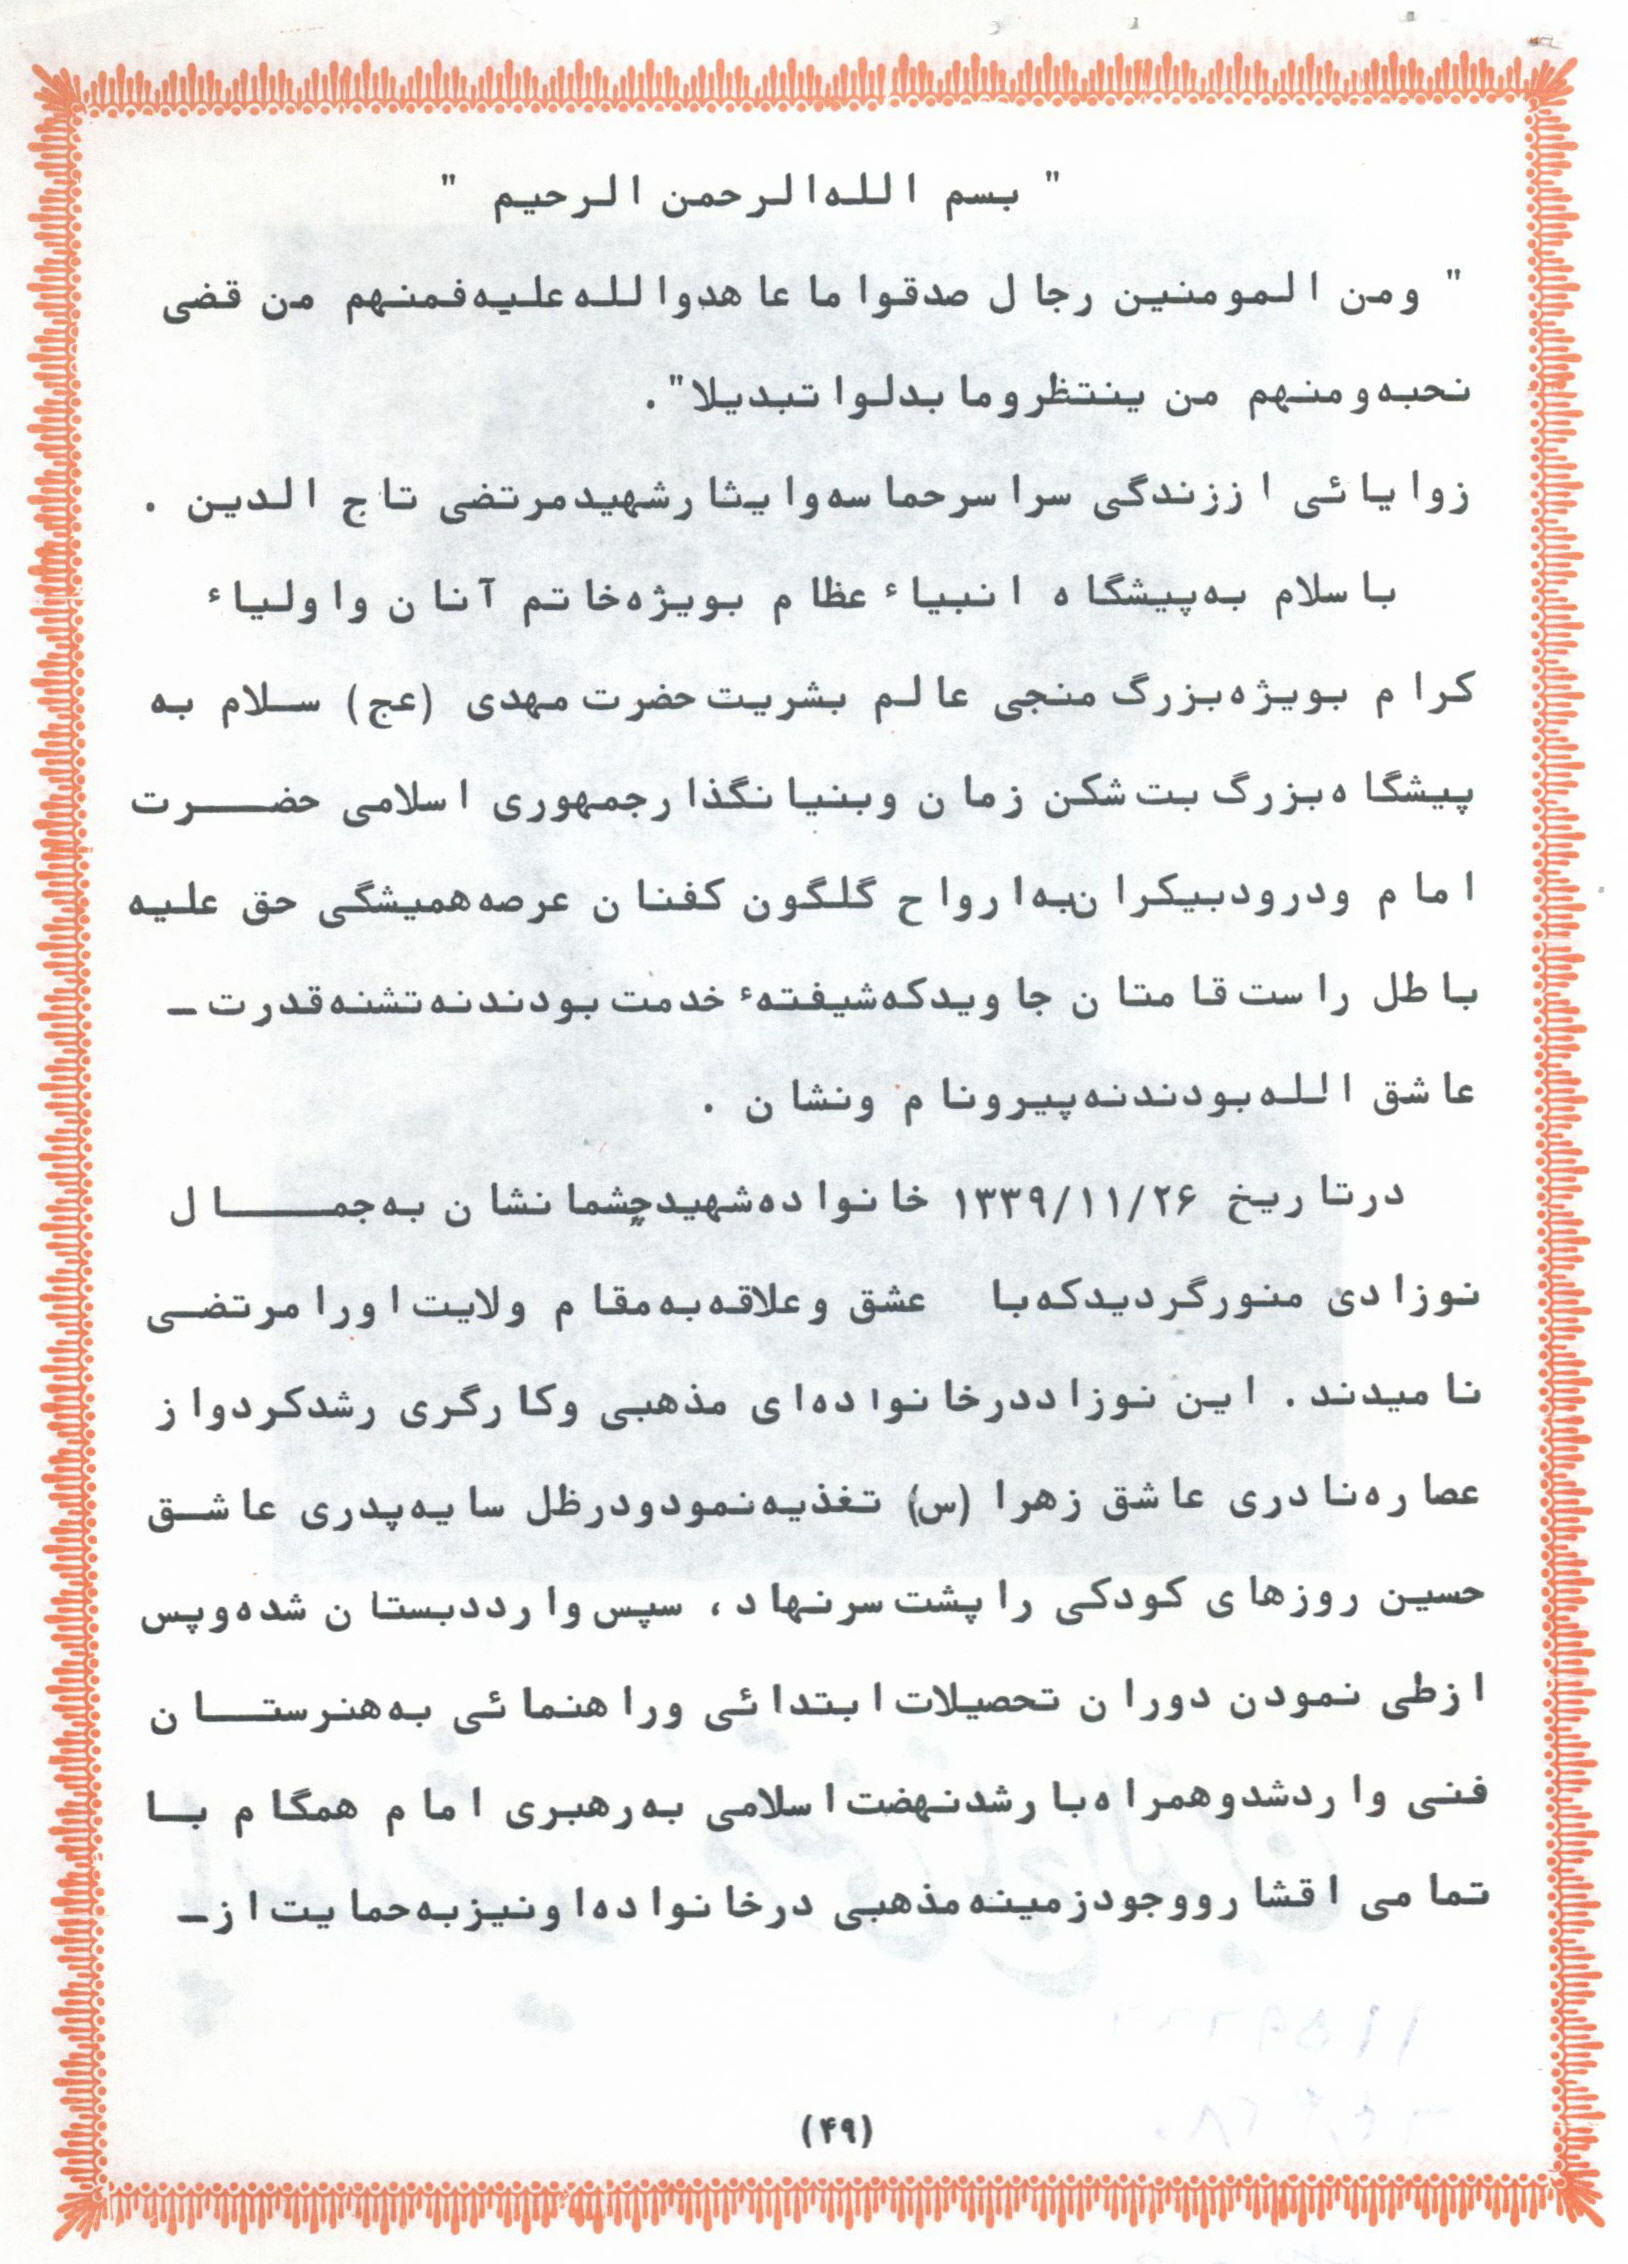 " بسم الله الرحمن الرحیم "
" ومن المومنین رجال صدقوا ما عاهدوا لله علیه فمنهم من قضی
نحبه ومنهم من ینتظر وما بدلوا تبدیلا" .
زوایائی از زندگی سراسر حماسه وایثار شهید مرتضی تاج الدین .
با سلام به پیشگاه انبیاء عظام بویژه خاتم آنان واولیاء
کرام بویژه بزرگ منجی عالم بشریت حضرت مهدی (عج) سلام به
پیشگاه بزرگ بت شکن زمان وبنیانگذار جمهوری اسلامی حضرت
امام ودرود بیکران به ارواح گلگون کفنان عرصه همیشگی حق علیه
باطل راست قامتان جاوید که شیفتهٔ خدمت بودند نه تشنه قدرت ـ
عاشق الله بودند نه پیرو نام ونشان .
در تاریخ ۱۳۳۹/۱۱/۲۶ خانواده شهید چشمانشان به جمال
نوزادی منور گردید که با عشق وعلاقه به مقام ولایت اورا مرتضی
نامیدند . این نوزاد در خانواده ای مذهبی وکارگری رشد کرد واز
عصاره نادری عاشق زهرا (س) تغذیه نمود ودر ظل سایه پدری عاشق
حسین روزهای کودکی را پشت سر نهاد ، سپس وارد دبستان شده و پس
از طی نمودن دوران تحصیلات ابتدائی وراهنمائی به هنرستان
فنی وارد شد و همراه با رشد نهضت اسلامی به رهبری امام همگام با
تمامی اقشار ووجود زمینه مذهبی در خانواده او نیز به حمایت از ـ
(۴۹)